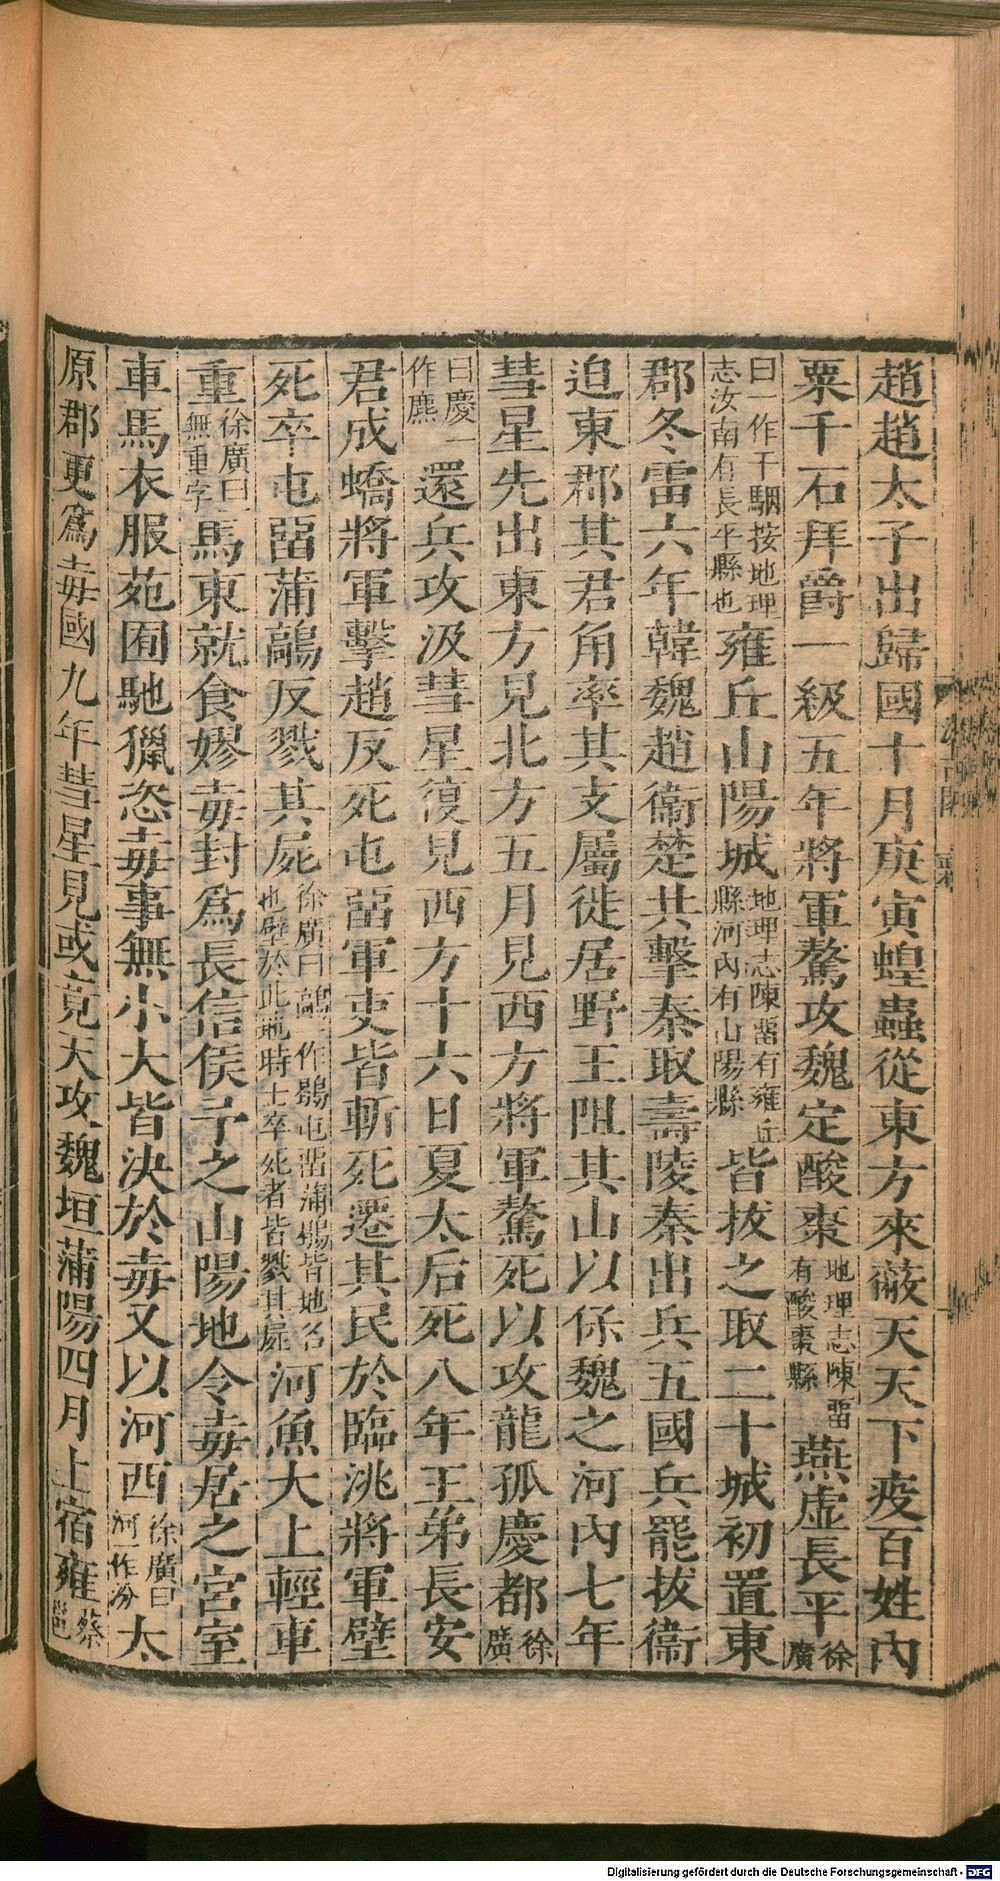 趙趙太子出歸國十月庚寅蝗蟲從東方來蔽天天下疫百姓內
粟千石拜爵一級五年將軍驁攻魏定酸棗地理志陳留有酸棗縣燕虛長平徐廣
曰一作干駰按地理志汝南有長平縣也雍丘山陽城地理志陳留有雍丘縣河內有山陽縣皆拔之取二十城初置東
郡冬雷六年韓魏趙衞楚共擊秦取壽陵秦出兵五國兵罷拔衞
迫東郡其君角率其支屬徙居野王阻其山以保魏之河內七年
彗星先出東方見北方五月見西方將軍驁死以攻龍孤慶都徐廣
曰慶一作麃還兵攻汲彗星復見西方十六日夏太后死八年王弟長安
君成蟜將軍擊趙反死屯畱軍吏皆斬死遷其民於臨洮將軍壁
死卒屯畱蒲鶮反戮其屍徐廣曰鶮一作鶡屯畱蒲鶡皆地名也壁於此地時士卒死者皆戮其屍河魚大上輕車
重徐廣曰一無重字馬東就食嫪毐封爲長信侯予之山陽地令毐居之宮室
車馬衣服苑囿馳獵恣毐事無小大皆決於毐又以河西徐廣曰河一作汾太
原郡更爲毐國九年彗星見或竟天攻魏垣蒲陽四月上宿雍蔡邕
Digitalisierung gefördert durch die Deutsche Forschungsgemeinschaft - DFG